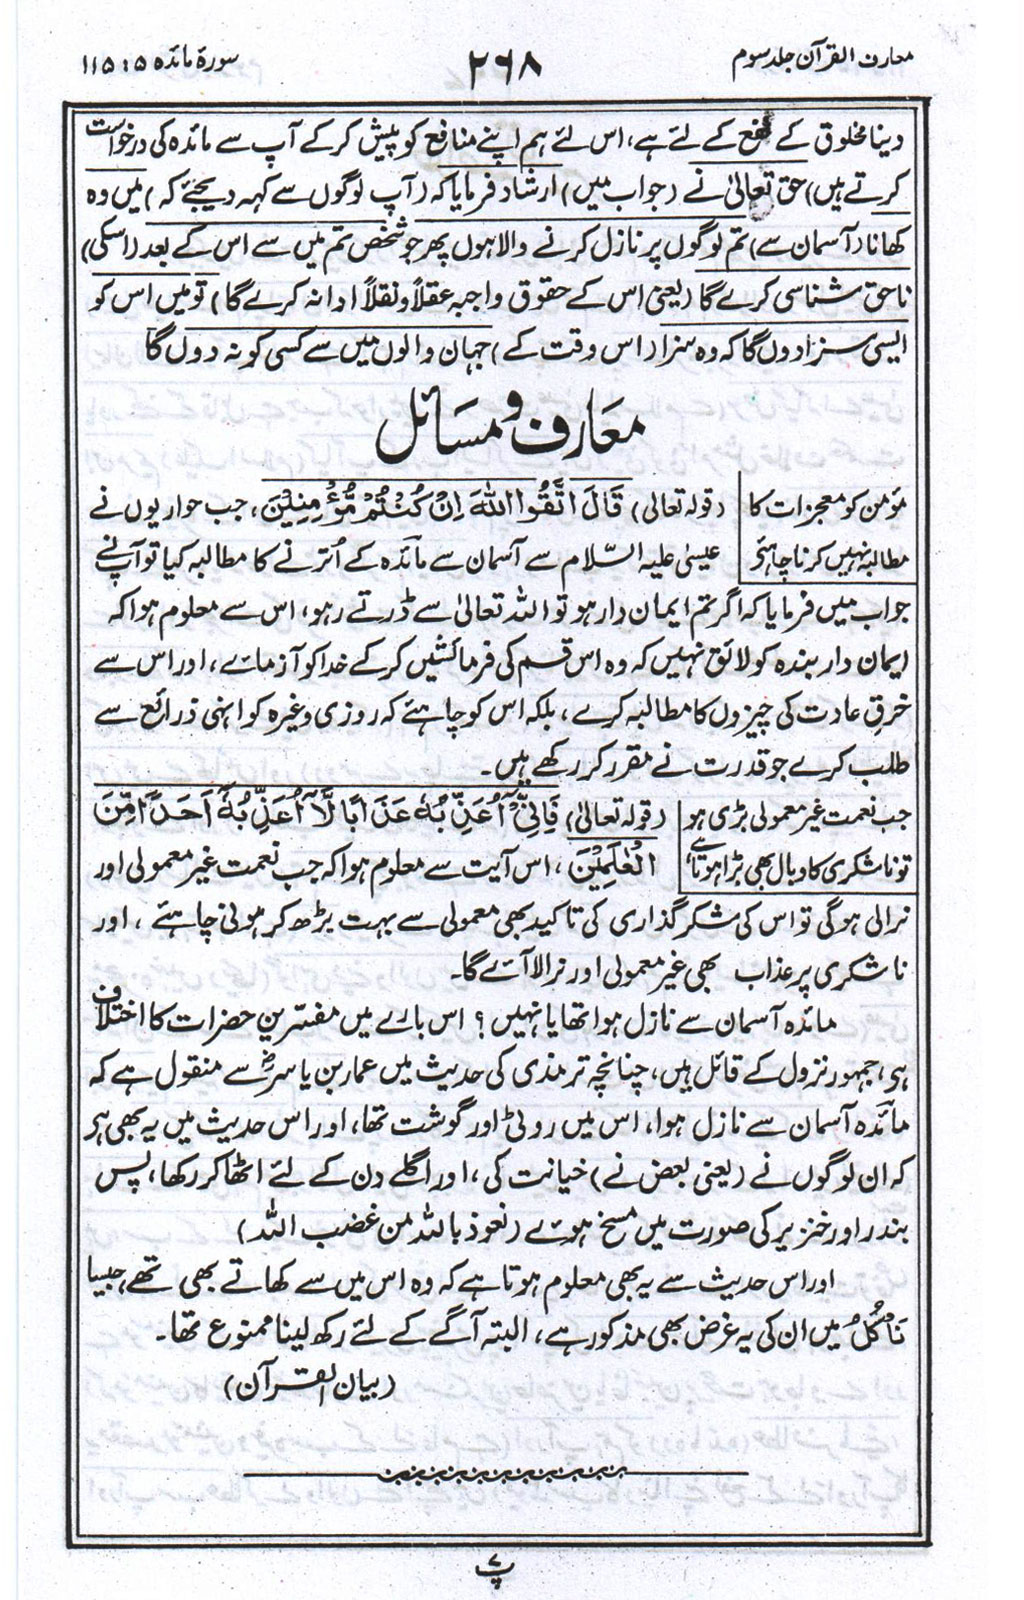 معارف القرآن جلد سوم
۲۶۸
سورۃ مائدہ ۵ : ۱۱۵
دینا مخلوق کے نفع کے لئے ہے، اس لئے ہم اپنے منافع کو پیش کر کے آپ سے مائدہ کی درخواست
کرتے ہیں) حق تعالیٰ نے (جواب میں) ارشاد فرمایا کہ (آپ لوگوں سے کہہ دیجئے کہ) میں وہ
کھانا (آسمان سے) تم لوگوں پر نازل کرنے والا ہوں پھر جو شخص تم میں سے اس کے بعد (اسکی)
ناحق شناسی کرے گا (یعنی اس کے حقوق واجبہ عقلاً و نقلاً ادا نہ کرے گا) تو میں اس کو
ایسی سزا دوں گا کہ وہ سزا (اس وقت کے) جہان والوں میں سے کسی کو نہ دوں گا
معارف و مسائل
مؤمن کو معجزات کا
مطالبہ نہیں کرنا چاہئے
(قولہ تعالی) قَالَ اتَّقُوا اللّٰهَ اِنْ كُنْتُمْ مُّؤْمِنِيْنَ، جب حواریوں نے
عیسیٰ علیہ السّلام سے آسمان سے مائدہ کے اُترنے کا مطالبہ کیا تو آپ نے
جواب میں فرمایا کہ اگر تم ایمان دار ہو تو اللہ تعالیٰ سے ڈرتے رہو، اس سے معلوم ہوا کہ
ایمان دار بندہ کو لائق نہیں کہ وہ اس قسم کی فرمائشیں کر کے خدا کو آزمائے، اور اس سے
خرقِ عادت کی چیزوں کا مطالبہ کرے، بلکہ اس کو چاہئے کہ روزی وغیرہ کو انہی ذرائع سے
طلب کرے جو قدرت نے مقرر کر رکھے ہیں۔
جب نعمت غیر معمولی بڑی ہو
تو ناشکری کا وبال بھی بڑا ہوتا ہے
(قولہ تعالیٰ) فَاِنِّيْٓ اُعَذِّبُهٗ عَذَابًا لَّآ اُعَذِّبُهٗٓ اَحَدًا مِّنَ
الْعٰلَمِيْنَ، اس آیت سے معلوم ہوا کہ جب نعمت غیر معمولی اور
نرالی ہوگی تو اس کی شکر گذاری کی تاکید بھی معمولی سے بہت بڑھ کر ہونی چاہئے، اور
ناشکری پر عذاب بھی غیر معمولی اور نرالا آئے گا۔
مائدہ آسمان سے نازل ہوا تھا یا نہیں؟ اس بارے میں مفسّرین حضرات کا اختلاف
ہی، جمہور نزول کے قائل ہیں، چنانچہ ترمذی کی حدیث میں عمار بن یاسرؓ سے منقول ہے کہ
مائدہ آسمان سے نازل ہوا، اس میں روٹی اور گوشت تھا، اور اس حدیث میں یہ بھی ہر
کہ ان لوگوں نے (یعنی بعض نے) خیانت کی، اور اگلے دن کے لئے اٹھا کر رکھا، پس
بندر اور خنزیر کی صورت میں مسخ ہوئے (نعوذ باللہ من غضب اللہ)
اور اس حدیث سے یہ بھی معلوم ہوتا ہے کہ وہ اس میں سے کھاتے بھی تھے، جیسا
نَاْكُلُ میں ان کی یہ غرض بھی مذکور ہے، البتہ آگے کے لئے رکھ لینا ممنوع تھا۔
(بیان القرآن)
پ